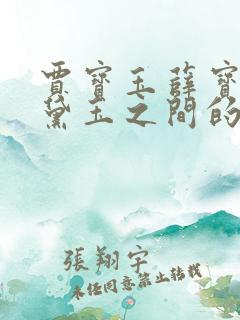 賈寶玉薛寶
黛玉之間的
張翔宇
未经同意禁止转载